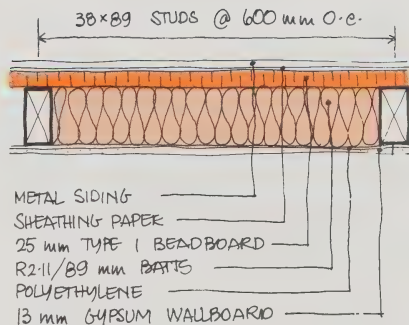 38×89 STUDS @ 600 mm O.C.
METAL SIDING
SHEATHING PAPER
25 mm TYPE 1 BEADBOARD
R2.11/89 mm BATTS
POLYETHYLENE
13 mm GYPSUM WALLBOARD